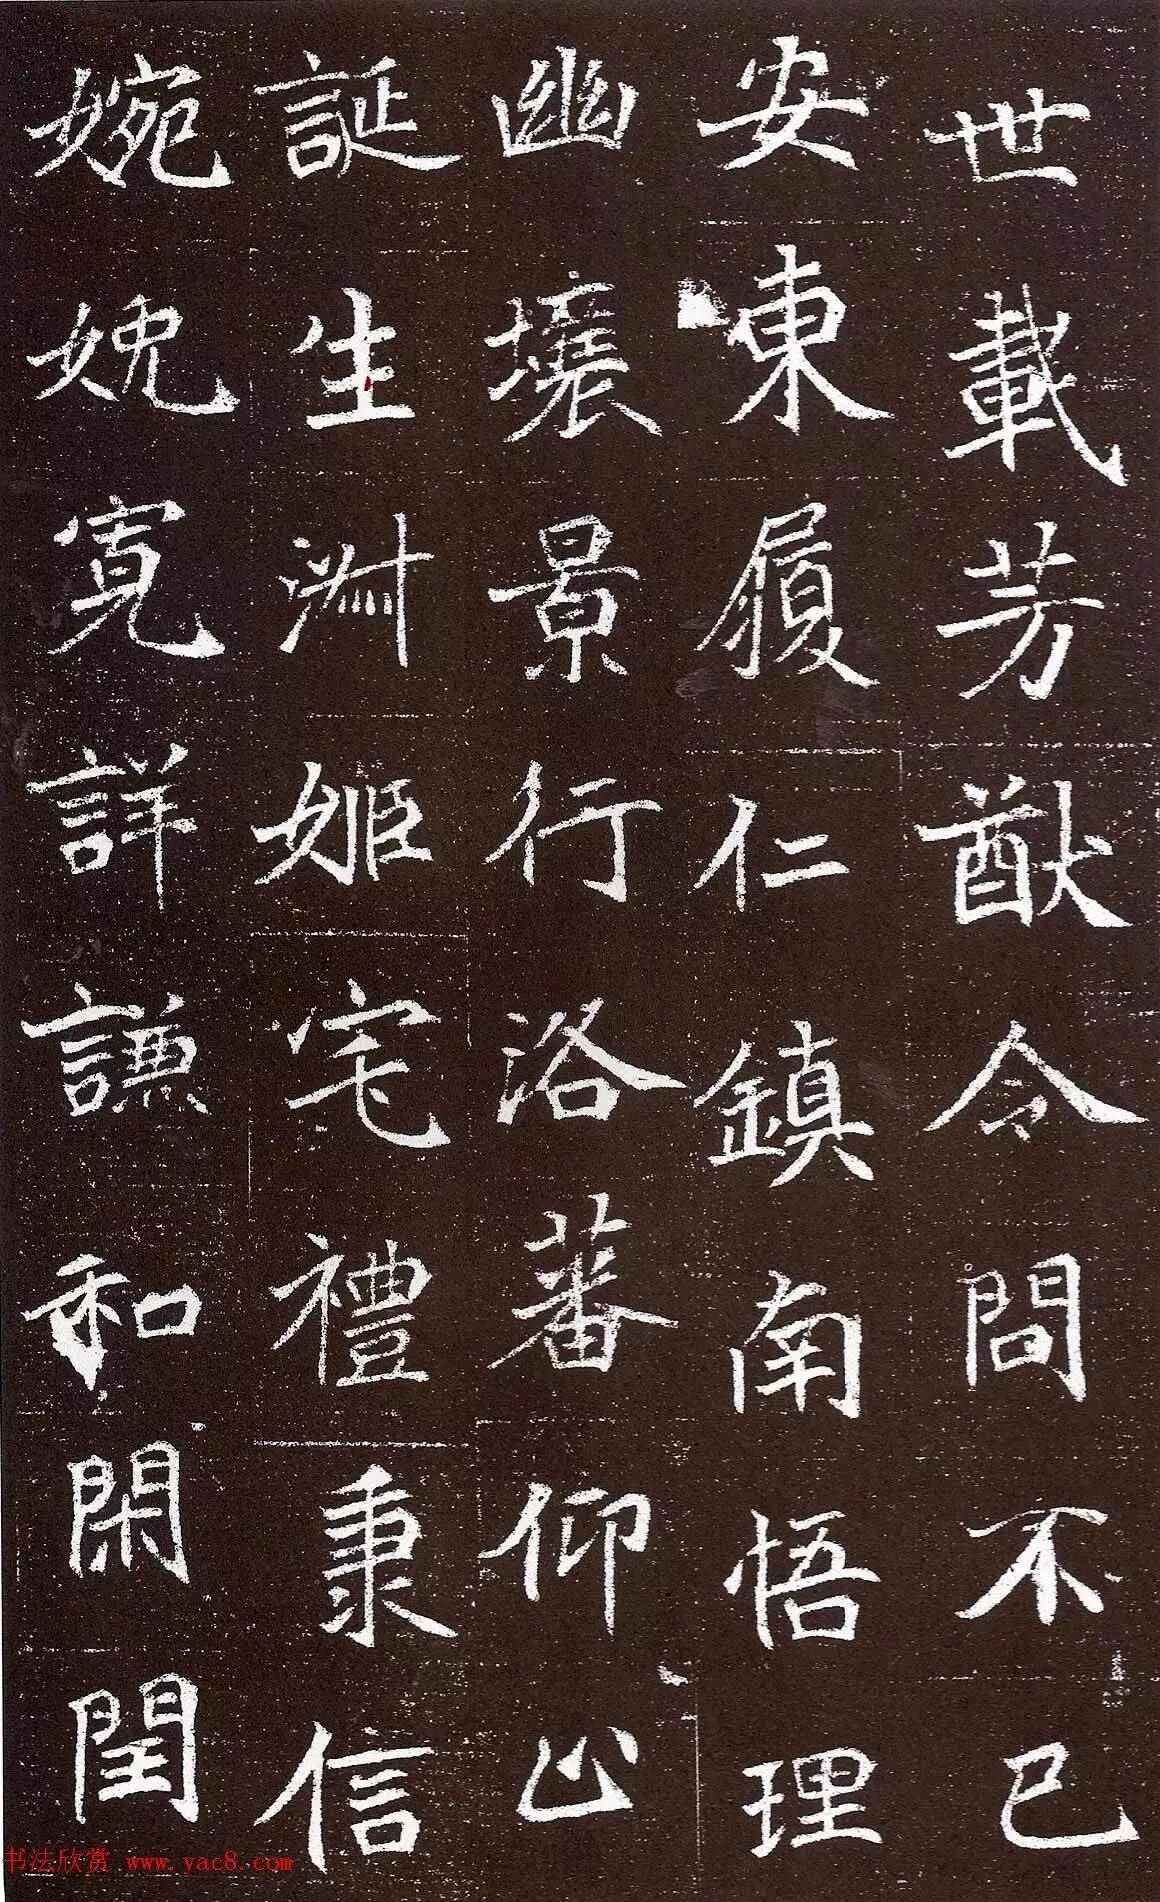 世載芳猷令問不已
安東履仁鎮南悟理
幽壤景行洛蕃仰止
誕生淑姬宅禮秉信
婉娩寬詳謙和閑閏
书法欣赏 www.yac8.com